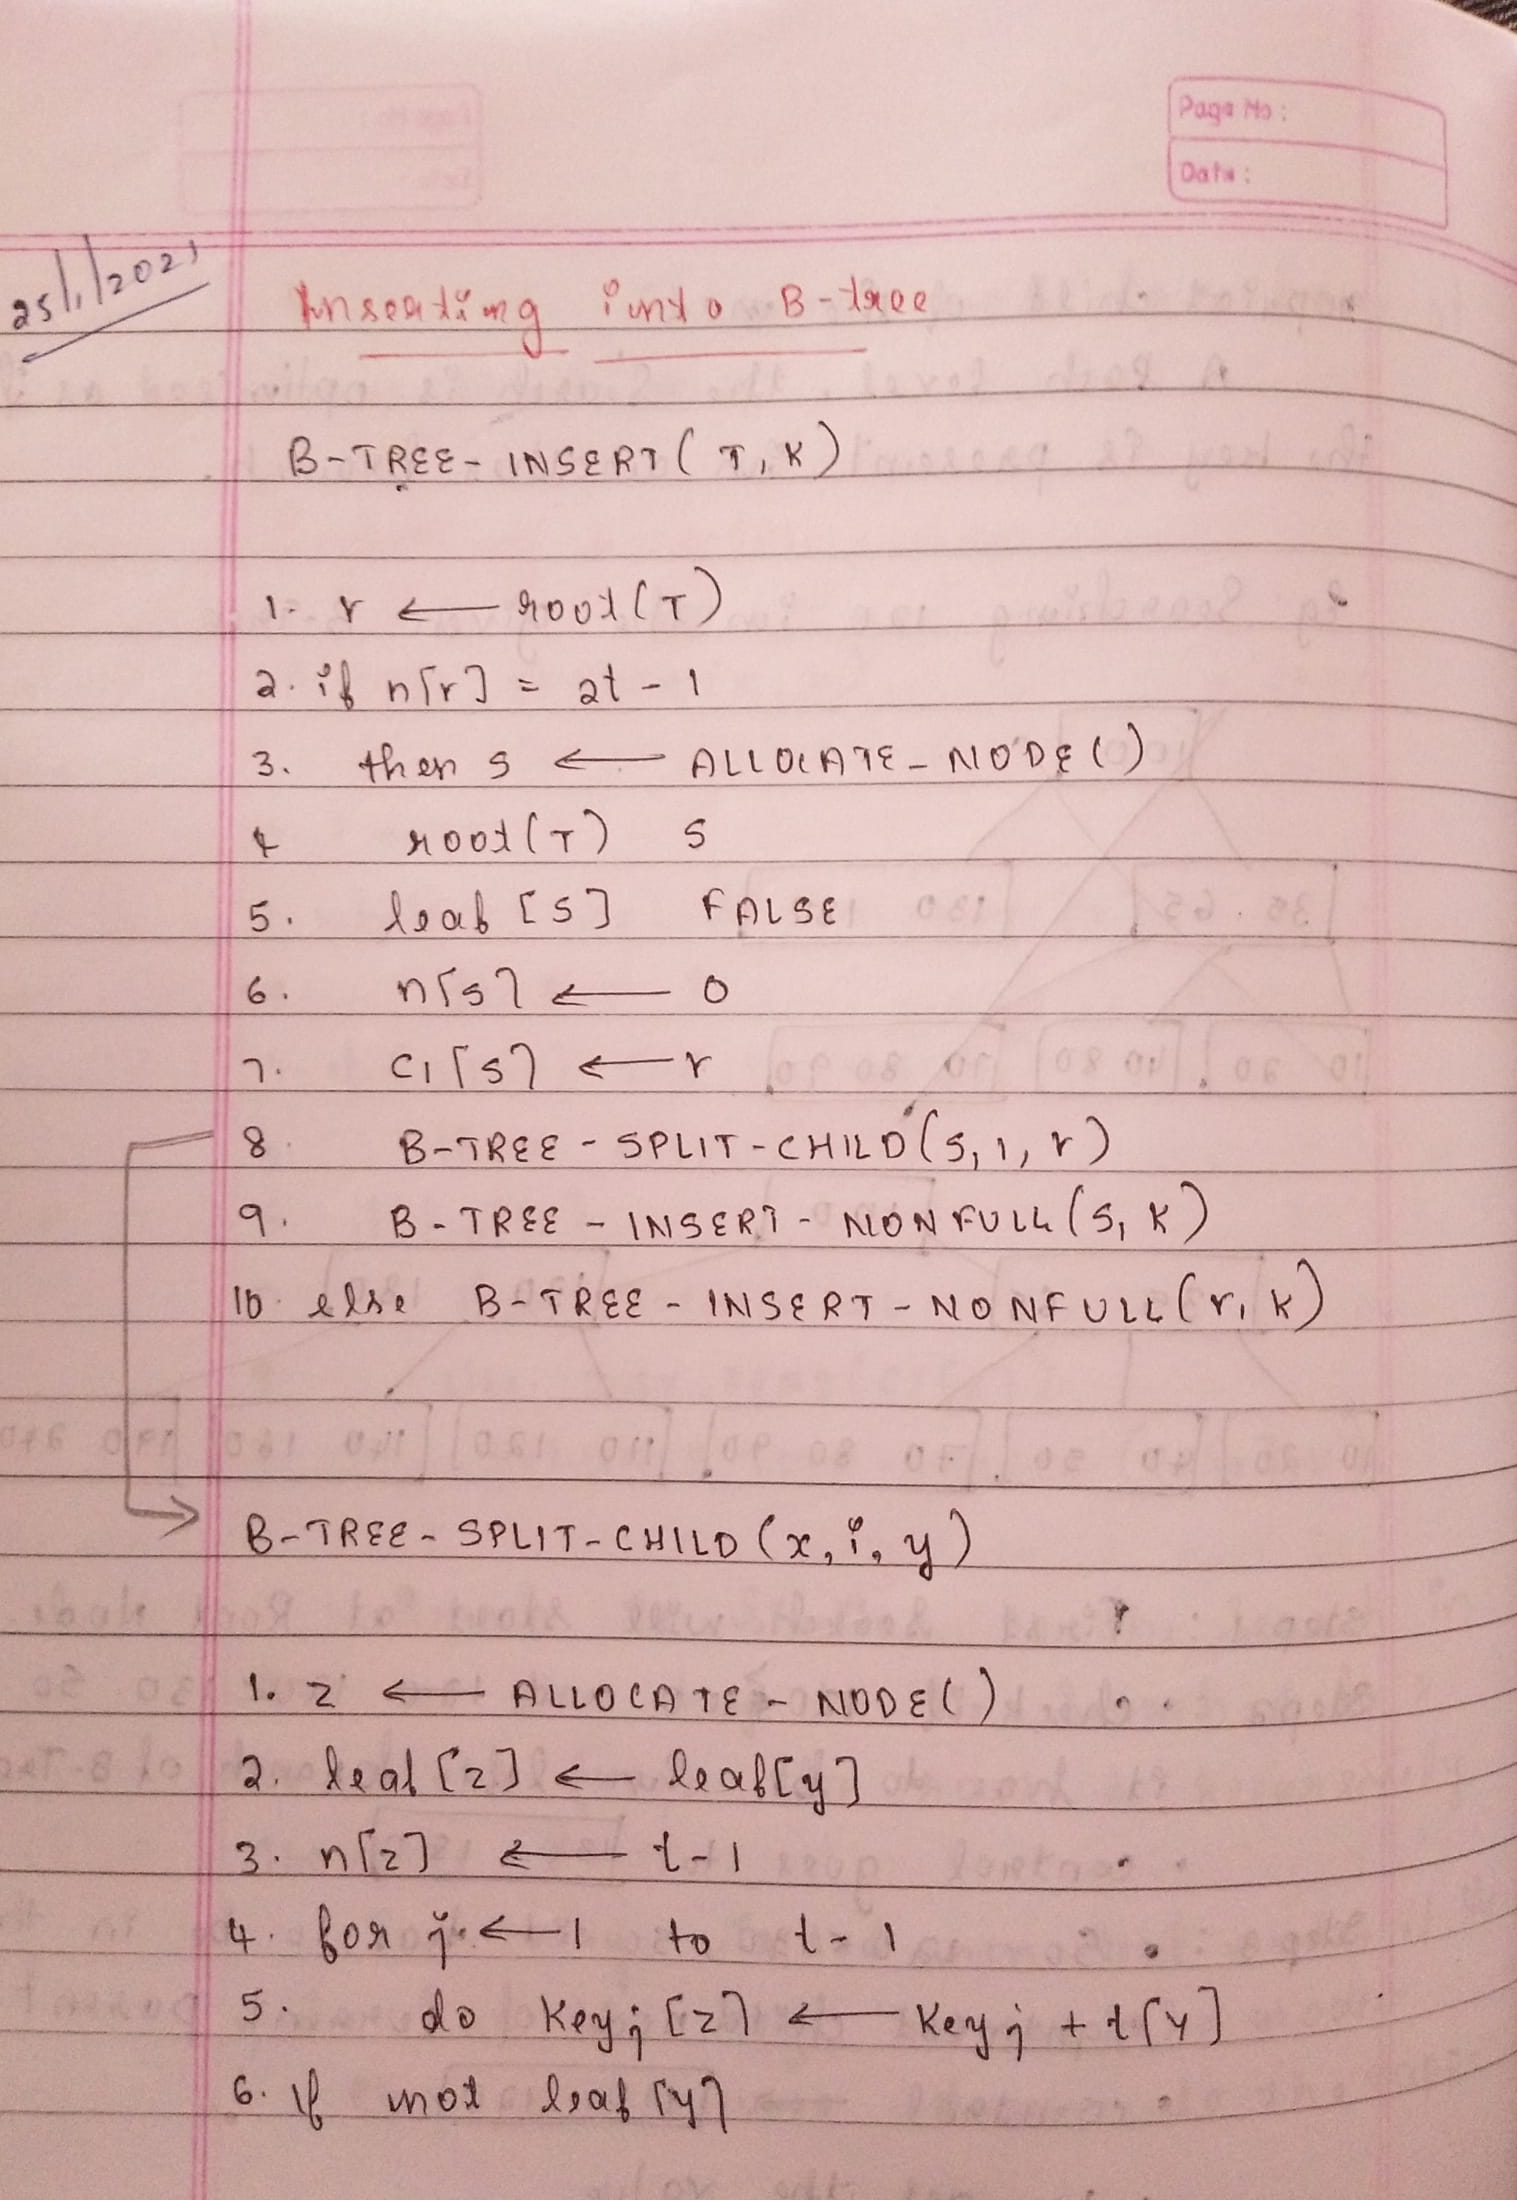 Page No:
Date:
25/1/2021
Inserting into B-tree
B-TREE-INSERT(T,K)
1. r ← root(T)
2. if n[r] = 2t-1
3. then s ← ALLOCATE-NODE()
4 root(T) S
5. leaf [S] FALSE
6. n[s] ← 0
7. C1[s] ← r
8. B-TREE-SPLIT-CHILD(S,1,r)
9. B-TREE-INSERT-NONFULL(S,K)
10. else B-TREE-INSERT-NONFULL(r,K)
B-TREE-SPLIT-CHILD(x,i,y)
1. z ← ALLOCATE-NODE()
2. leaf[z] ← leaf[y]
3. n[z] ← t-1
4. for j ← 1 to t-1
5. do Keyj[z] ← Keyj+t[y]
6. If not leaf[y]